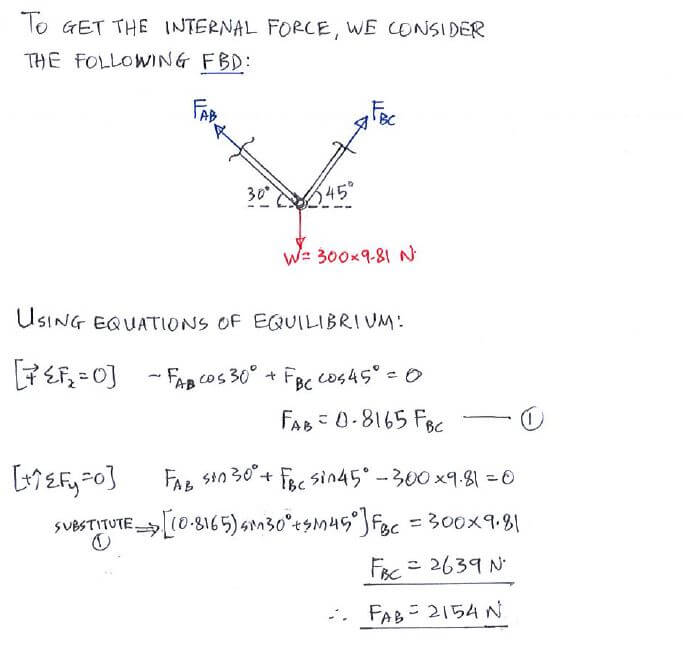 TO GET THE INTERNAL FORCE, WE CONSIDER
THE FOLLOWING FBD:
F_AB F_BC
30° 45°
W= 300×9.81 N
USING EQUATIONS OF EQUILIBRIUM:
[→+ ΣFx=0] -F_AB cos30° + F_BC cos45° = 0
F_AB = 0.8165 F_BC —— ①
[+↑ΣFy=0] F_AB sin30° + F_BC sin45° - 300×9.81 = 0
SUBSTITUTE ① ⇒ [(0.8165)sin30°+sin45°]F_BC = 300×9.81
F_BC = 2639 N
∴ F_AB = 2154 N